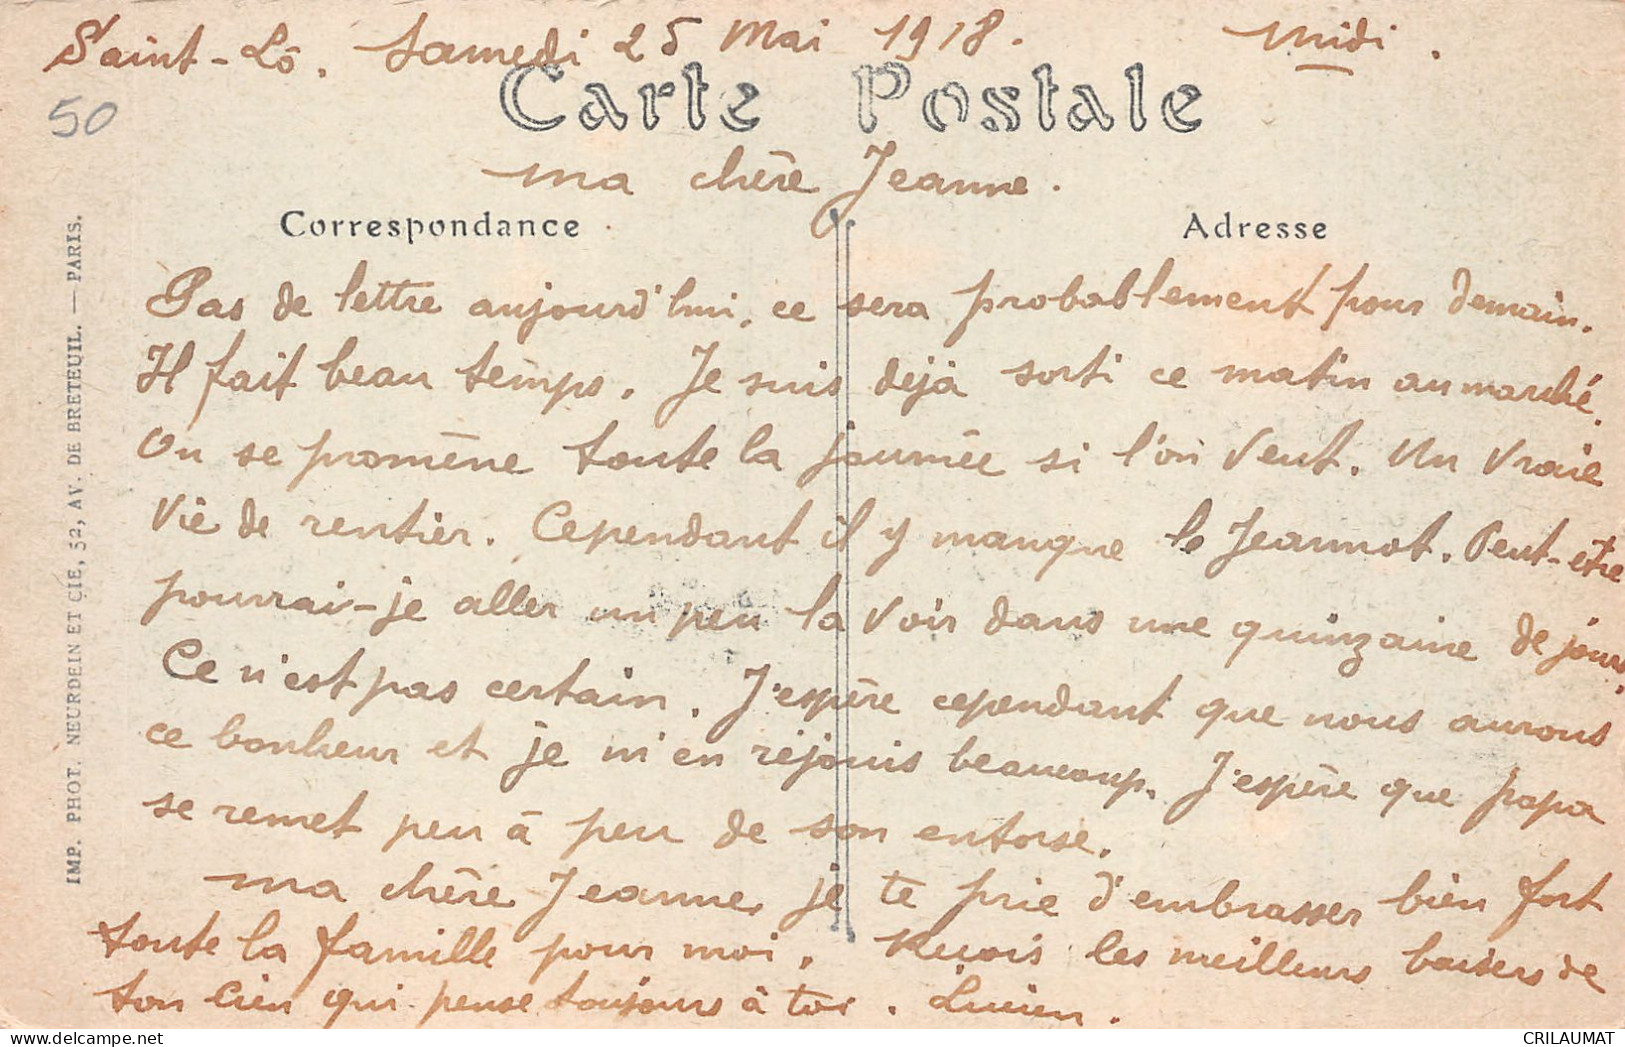 Saint-Lô. Samedi 25 Mai 1918. Midi.
50
Carte Postale
ma chère Jeanne.
Correspondance
Adresse
Pas de lettre aujourd'hui, ce sera probablement pour demain.
Il fait beau temps. Je suis déjà sorti ce matin au marché.
On se promène toute la journée si l'on veut. Un vraie
vie de rentier. Cependant il y manque le Jeannot. Peut-etre
pourrai-je aller un peu la voir dans une quinzaine de jours.
Ce n'est pas certain. J'espère cependant que nous aurons
ce bonheur et je m'en réjouis beaucoup. J'espère que papa
se remet peu à peu de son entorse.
ma chère Jeanne, je te prie d'embrasser bien fort
toute la famille pour moi. Reçois les meilleurs baisers de
ton Lien qui pense toujours à toi. Lucien.
IMP. PHOT. NEURDEIN ET CIE, 52, AV. DE BRETEUIL. — PARIS.
CRILAUMAT